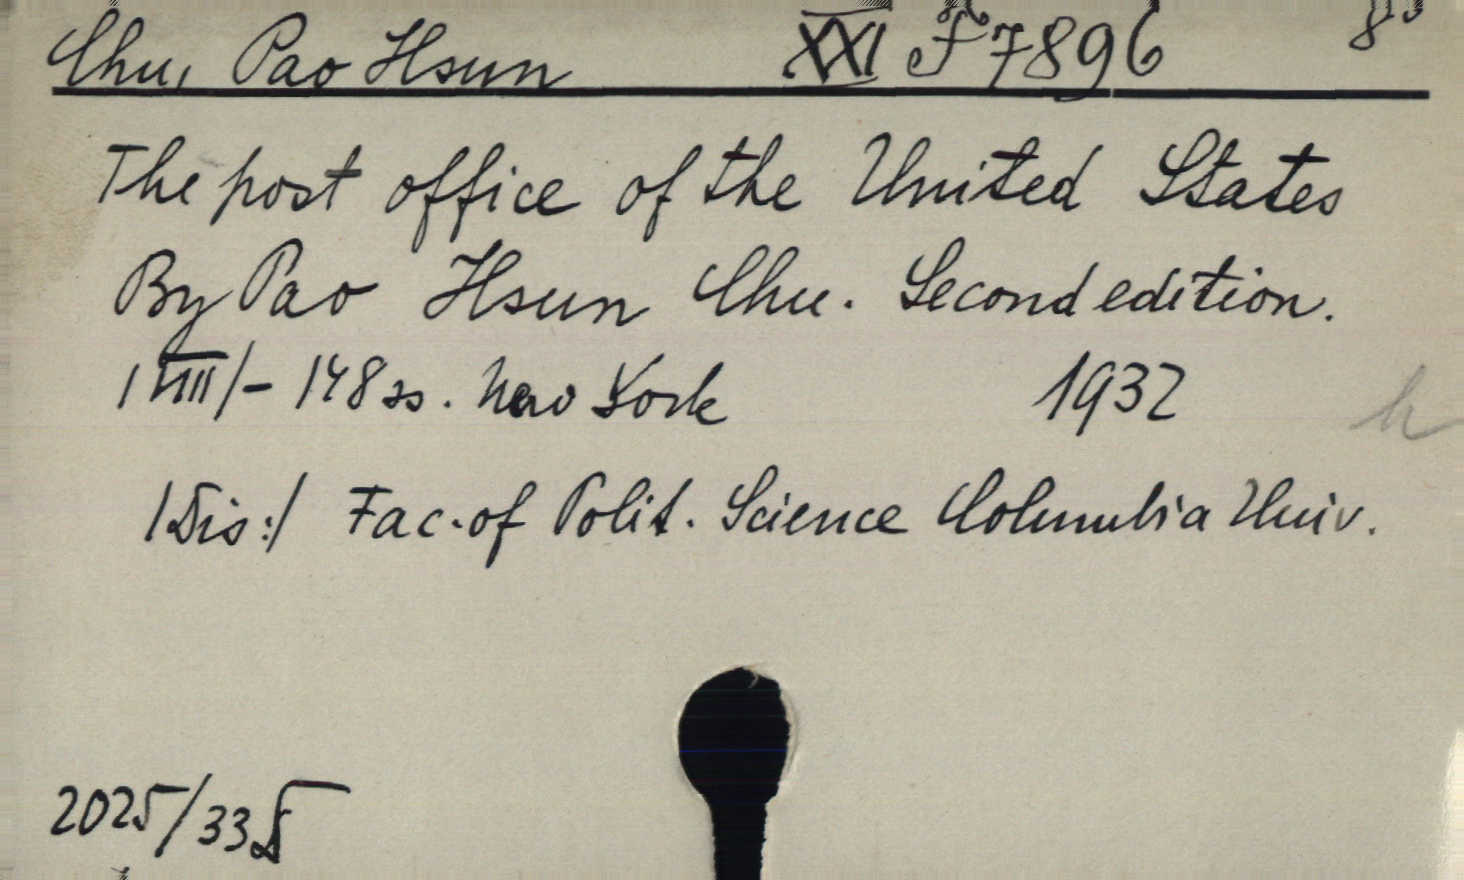 Chu, Pao Hsun XXI F 7896 8°
The post office of the United States
By Pao Hsun Chu. Second edition.
/VIII/ - 148 ss. New York 1932
/Dis:/ Fac. of Polit. Science Columbia Univ.
2025/33 D